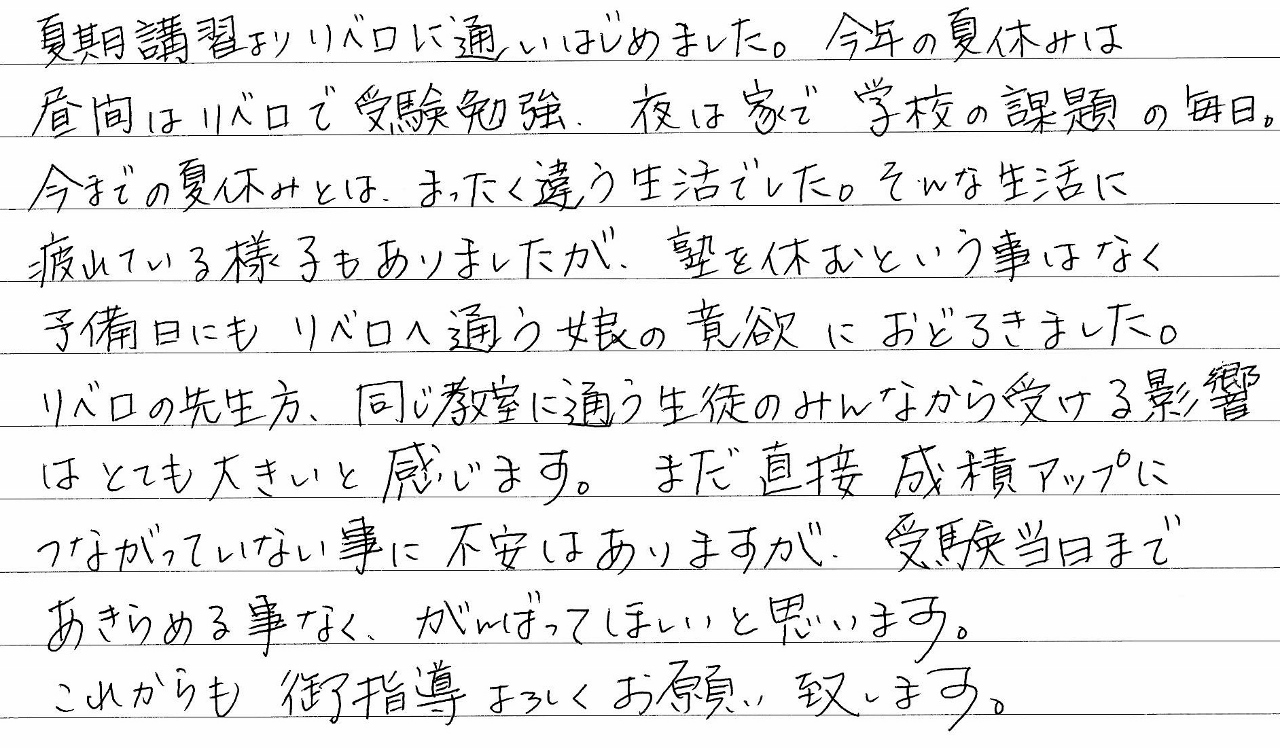 夏期講習よりリベロに通いはじめました。今年の夏休みは
昼間はリベロで受験勉強、夜は家で学校の課題の毎日。
今までの夏休みとは、まったく違う生活でした。そんな生活に
疲れている様子もありましたが、塾を休むという事はなく
予備日にもリベロへ通う娘の意欲におどろきました。
リベロの先生方、同じ教室に通う生徒のみんなから受ける影響
はとても大きいと感じます。まだ直接成積アップに
つながっていない事に不安はありますが、受験当日まで
あきらめる事なく、がんばってほしいと思います。
これからも御指導よろしくお願い致します。